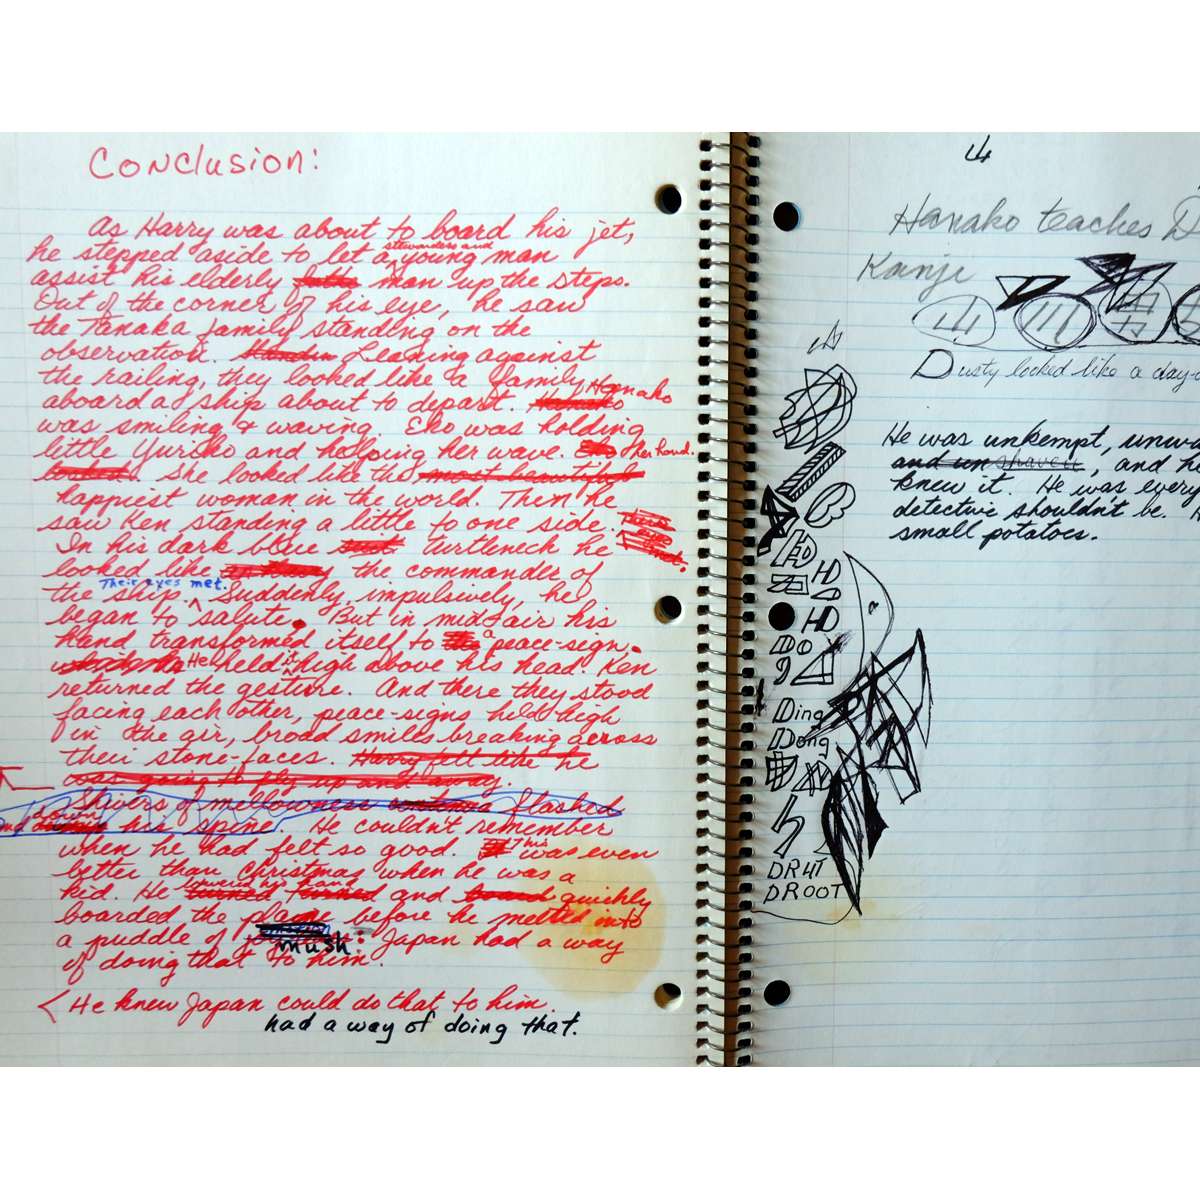 Conclusion:
As Harry was about to board his jet,
he stepped aside to let a stewardess and young man
assist his elderly man up the steps.
Out of the corner of his eye, he saw
the Tanaka family standing on the
observation. Leaning against
the railing, they looked like a family
aboard a ship about to depart. Hanako
was smiling & waving. Eko was holding
little Yuriko and helping her wave. her hand.
She looked like the most beautiful
happiest woman in the world. Then he
saw Ken standing a little to one side.
In his dark blue suit turtleneck he
looked like the commander of
Their eyes met.
the ship. Suddenly, impulsively, he
began to salute. But in mid-air his
hand transformed itself to a peace-sign.
He held it high above his head. Ken
returned the gesture. And there they stood
facing each other, peace-signs held high
in the air, broad smiles breaking across
their stone-faces. Harry felt like he
was going to fly up and away.
Shivers of mellowness flashed
down his spine. He couldn't remember
when he had felt so good. This was even
better than Christmas when he was a
kid. He turned and quickly
boarded the plane before he melted into
a puddle of mush. Japan had a way
of doing that to him.
< He knew Japan could do that to him.
had a way of doing that.
Hanako teaches D
Kanji
Dusty looked like a day-o
He was unkempt, unwa
and unshaven, and h
knew it. He was every
detective shouldn't be. H
small potatoes.
HD
HD
DO
Ding
Dong
DRUT
DROOT